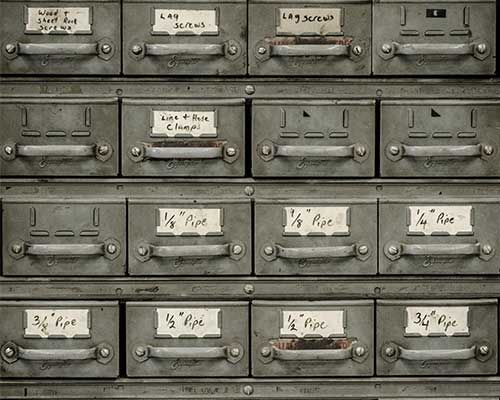 Wood +
Sheet Rock
Screws
LAG
SCREWS
LAg SCREWS
Line + Hose
Clamps
1/8" Pipe
1/8" Pipe
1/4" Pipe
3/8" Pipe
1/2" Pipe
1/2" Pipe
3/4" Pipe